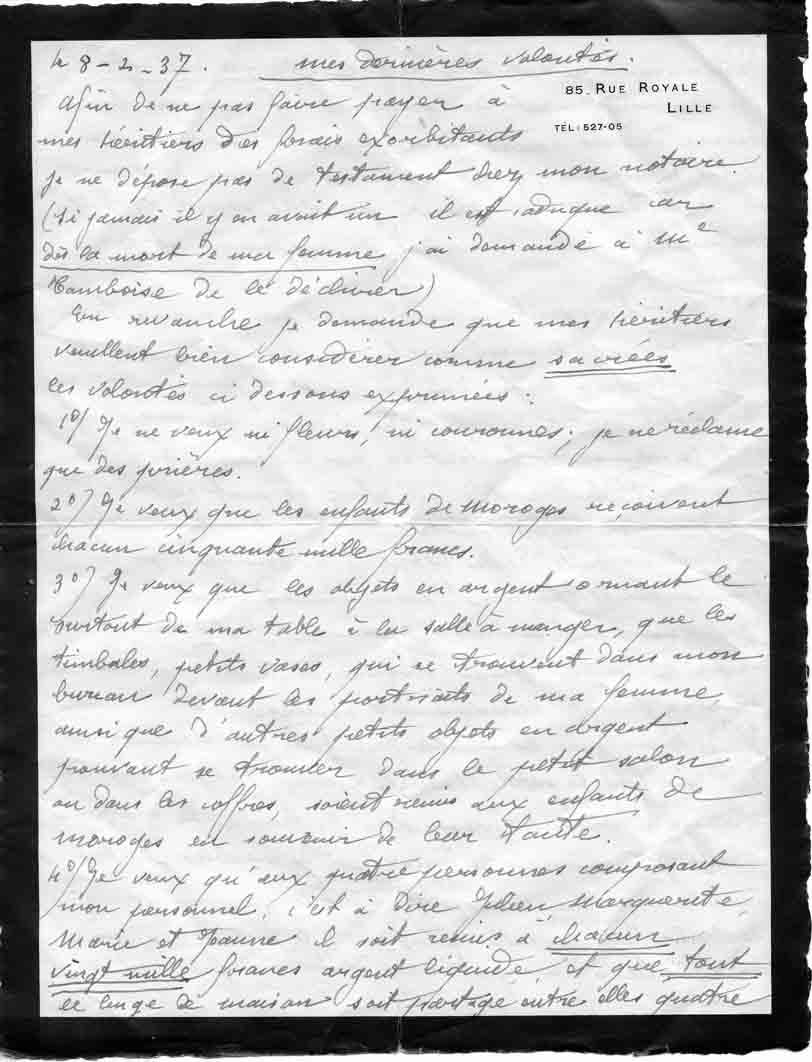 le 8-2-37. mes dernières volontés.
85. RUE ROYALE
LILLE
TÉL: 527-05
Afin de ne pas faire payer à
mes héritiers des frais exorbitants
je ne dépose pas de testament chez mon notaire.
(si jamais il y en avait un il est caduque car
dès la mort de ma femme j'ai demandé à Me
de le déchirer)
En revanche je demande que mes héritiers
veuillent bien considérer comme sacrées
les volontés ci dessous exprimées:
1o/ Je ne veux ni fleurs, ni couronnes; je ne réclame
que des prières.
2o/ Je veux que les enfants de Moroges reçoivent
chacun cinquante mille francs.
3o/ Je veux que les objets en argent ornant le
surtout de ma table à la salle à manger, que les
timbales, petits vases, qui se trouvent dans mon
bureau devant les portraits de ma femme,
ainsi que d'autres petits objets en argent
pouvant se trouver dans le petit salon
ou dans les coffres, soient remis aux enfants de
Moroges en souvenir de leur tante.
4o/ Je veux qu'aux quatre personnes composant
mon personnel, c'est à dire Julien, Marguerite,
Marie et Jeanne il soit remis à chacun
vingt mille francs argent liquide et que tout
le linge de maison soit partagé entre elles quatre